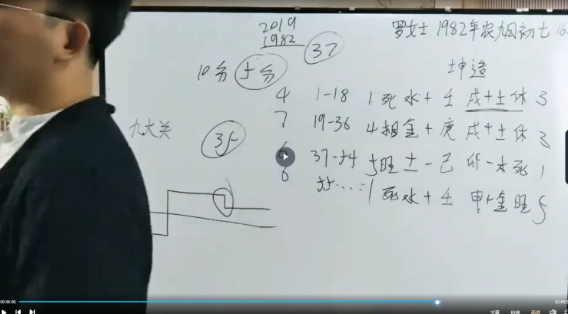 2019
1982
37
罗女士 1982年农历 初七
坤造
10分 5分
4 1-18 1死水+壬 戌+土休 3
7 19-36 4相金+庚 戌+土休 3
37-54 5旺土-己 卯-木死 1
6 55……=1死水+壬 申+金旺 5
九大关
35
00:00:00